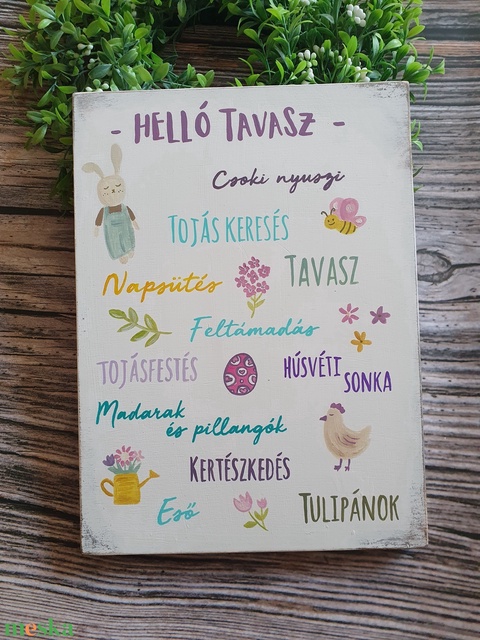 - HELLÓ TAVASZ -
Csoki nyuszi
TOJÁS KERESÉS
Napsütés
TAVASZ
Feltámadás
TOJÁSFESTÉS
HÚSVÉTI
SONKA
Madarak
és pillangók
KERTÉSZKEDÉS
Eső
TULIPÁNOK
meska